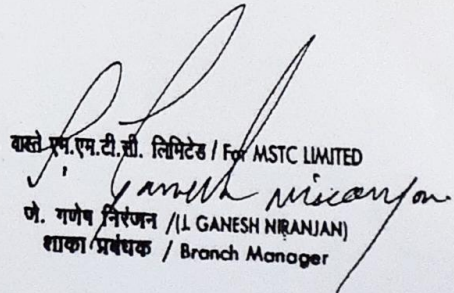 वास्ते एम.एम.टी.सी. लिमिटेड / For MSTC LIMITED
Ganesh Niranjan
जे. गणेष निरंजन /(J. GANESH NIRANJAN)
शाका प्रबंधक / Branch Manager